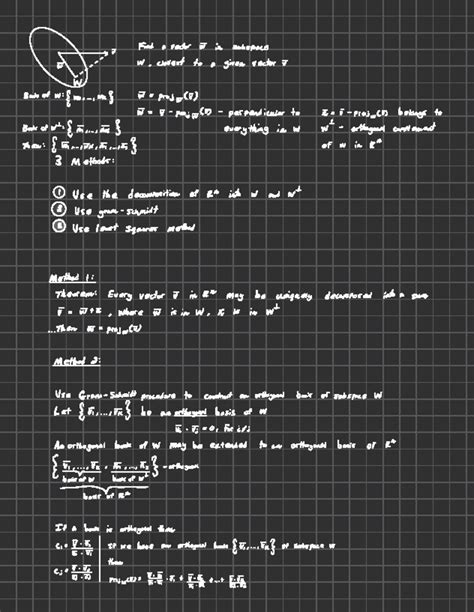 Find a vector w̄ in subspace
W, closest to a given vector v̄
Basis of W: {w̄₁, ..., w̄ₖ}
w̄ = proj_w(v̄)
w̄ = v̄ - proj_w(v̄) - perpendicular to
everything in W
x̄ = v̄ - proj_w(v̄) belongs to
W⊥ - orthogonal complement
of W in ℝⁿ
Basis of W⊥: {
Then: {
3 Methods:
① Use the decomposition of ℝⁿ into W and W⊥
② Use gram-schmidt
③ Use least squares method
Method 1:
Theorem: Every vector v̄ in ℝⁿ may be uniquely decomposed into a sum
v̄ = w̄ + x̄, where w̄ is in W, x̄ is in W⊥
...Then w̄ = proj_w(v̄)
Method 2:
Use Gram-Schmidt procedure to construct an orthogonal basis of subspace W
Let {v̄₁, ..., v̄ₖ} be an orthogonal basis of W
v̄ᵢ · v̄ⱼ = 0, for i≠j
An orthogonal basis of W may be extended to an orthogonal basis of ℝⁿ
{v̄₁, ..., v̄ₖ, } - orthogonal
basis of W basis of W⊥
basis of ℝⁿ
If a basis is orthogonal then
If we have an orthogonal basis {v̄₁, ..., v̄ₖ} of subspace W
then